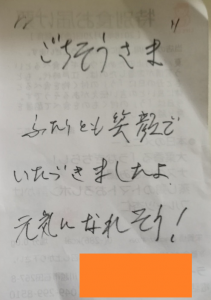 "ごちそうさま"
ふたりとも笑顔で
いただきましたよ
元気になれそう!